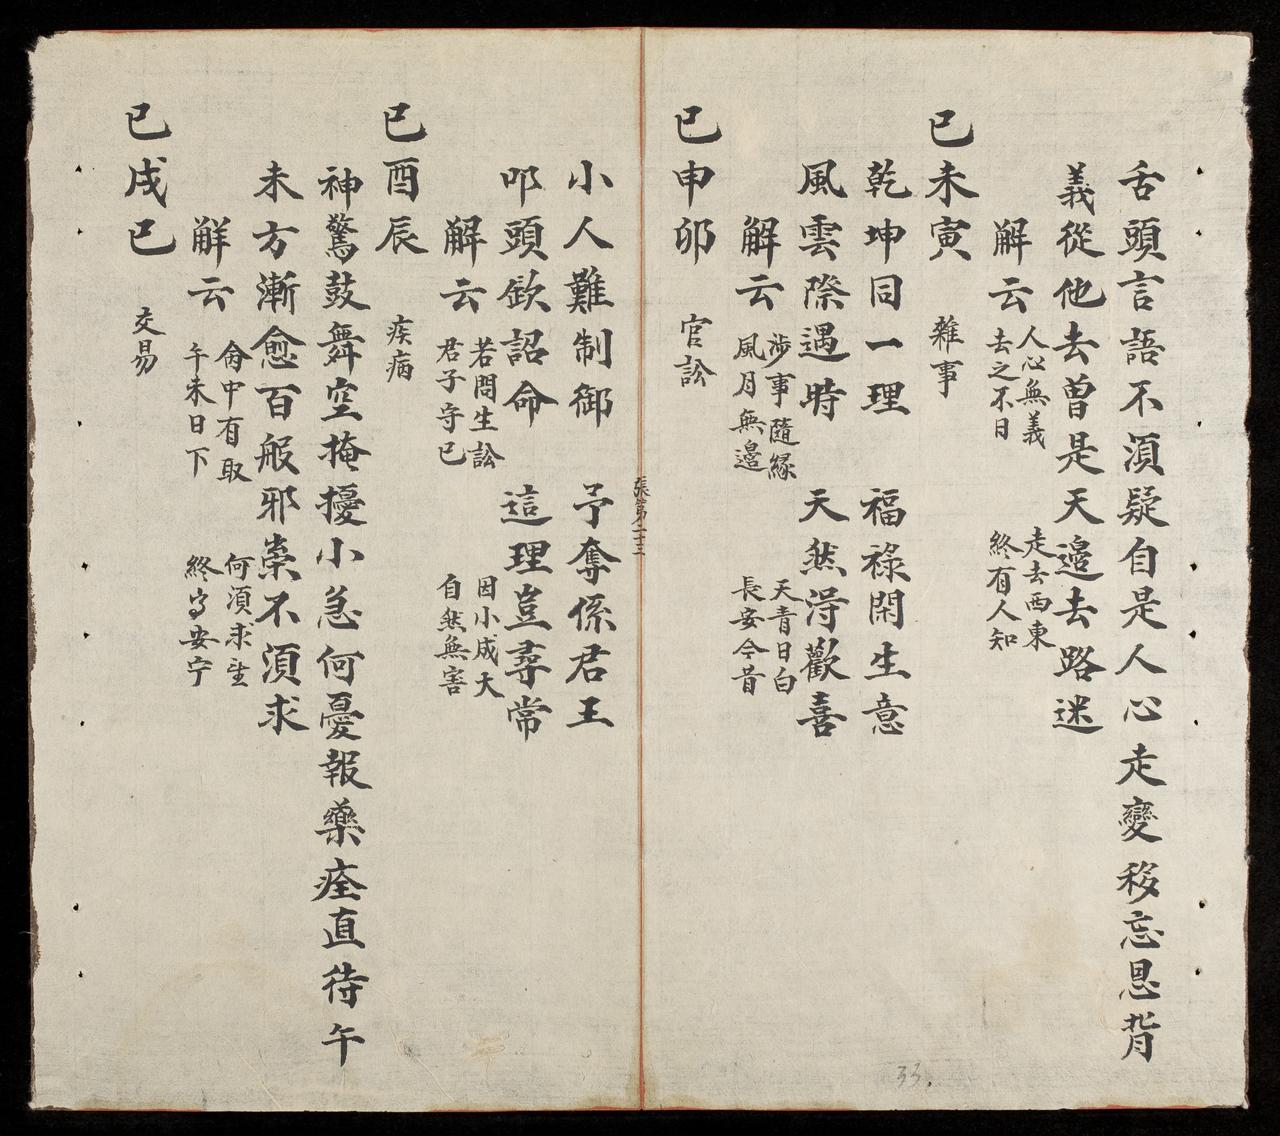 舌頭言語不湏疑自是人心走變移忘恩背
義從他去曾是天邉去路迷
解云 人心無義 去之不日 走去西東 終有人知
已未寅 雜事
乾坤同一理 福祿閑生意
風雲際遇時 天然淂歡喜
解云 涉事隨緣 風月無邉 天青日白 長安今昔
已申卯 官訟
張第二十三
小人難制御 予奪係君王
叩頭欽詔命 這理豈尋常
解云 若問生訟 君子守已 因小成大 自然無害
已酉辰 疾病
神驚鼓舞空掩擾小急何憂報藥痊直待午
未方漸愈百般邪祟不湏求
解云 中有取 午未日下 何湏求 終安宁
已戌已 交易
33.